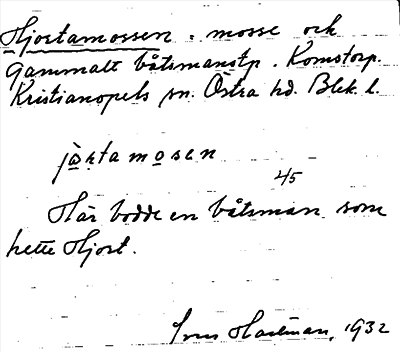 Hjortamossen. mosse och
gammalt båtsmanstp. Komstorp.
Kristianopels sn. Östra hd. Blek. l.
jòrtamosen
45
Här bodde en båtsman som
hette Hjort.
Hartman, 1932